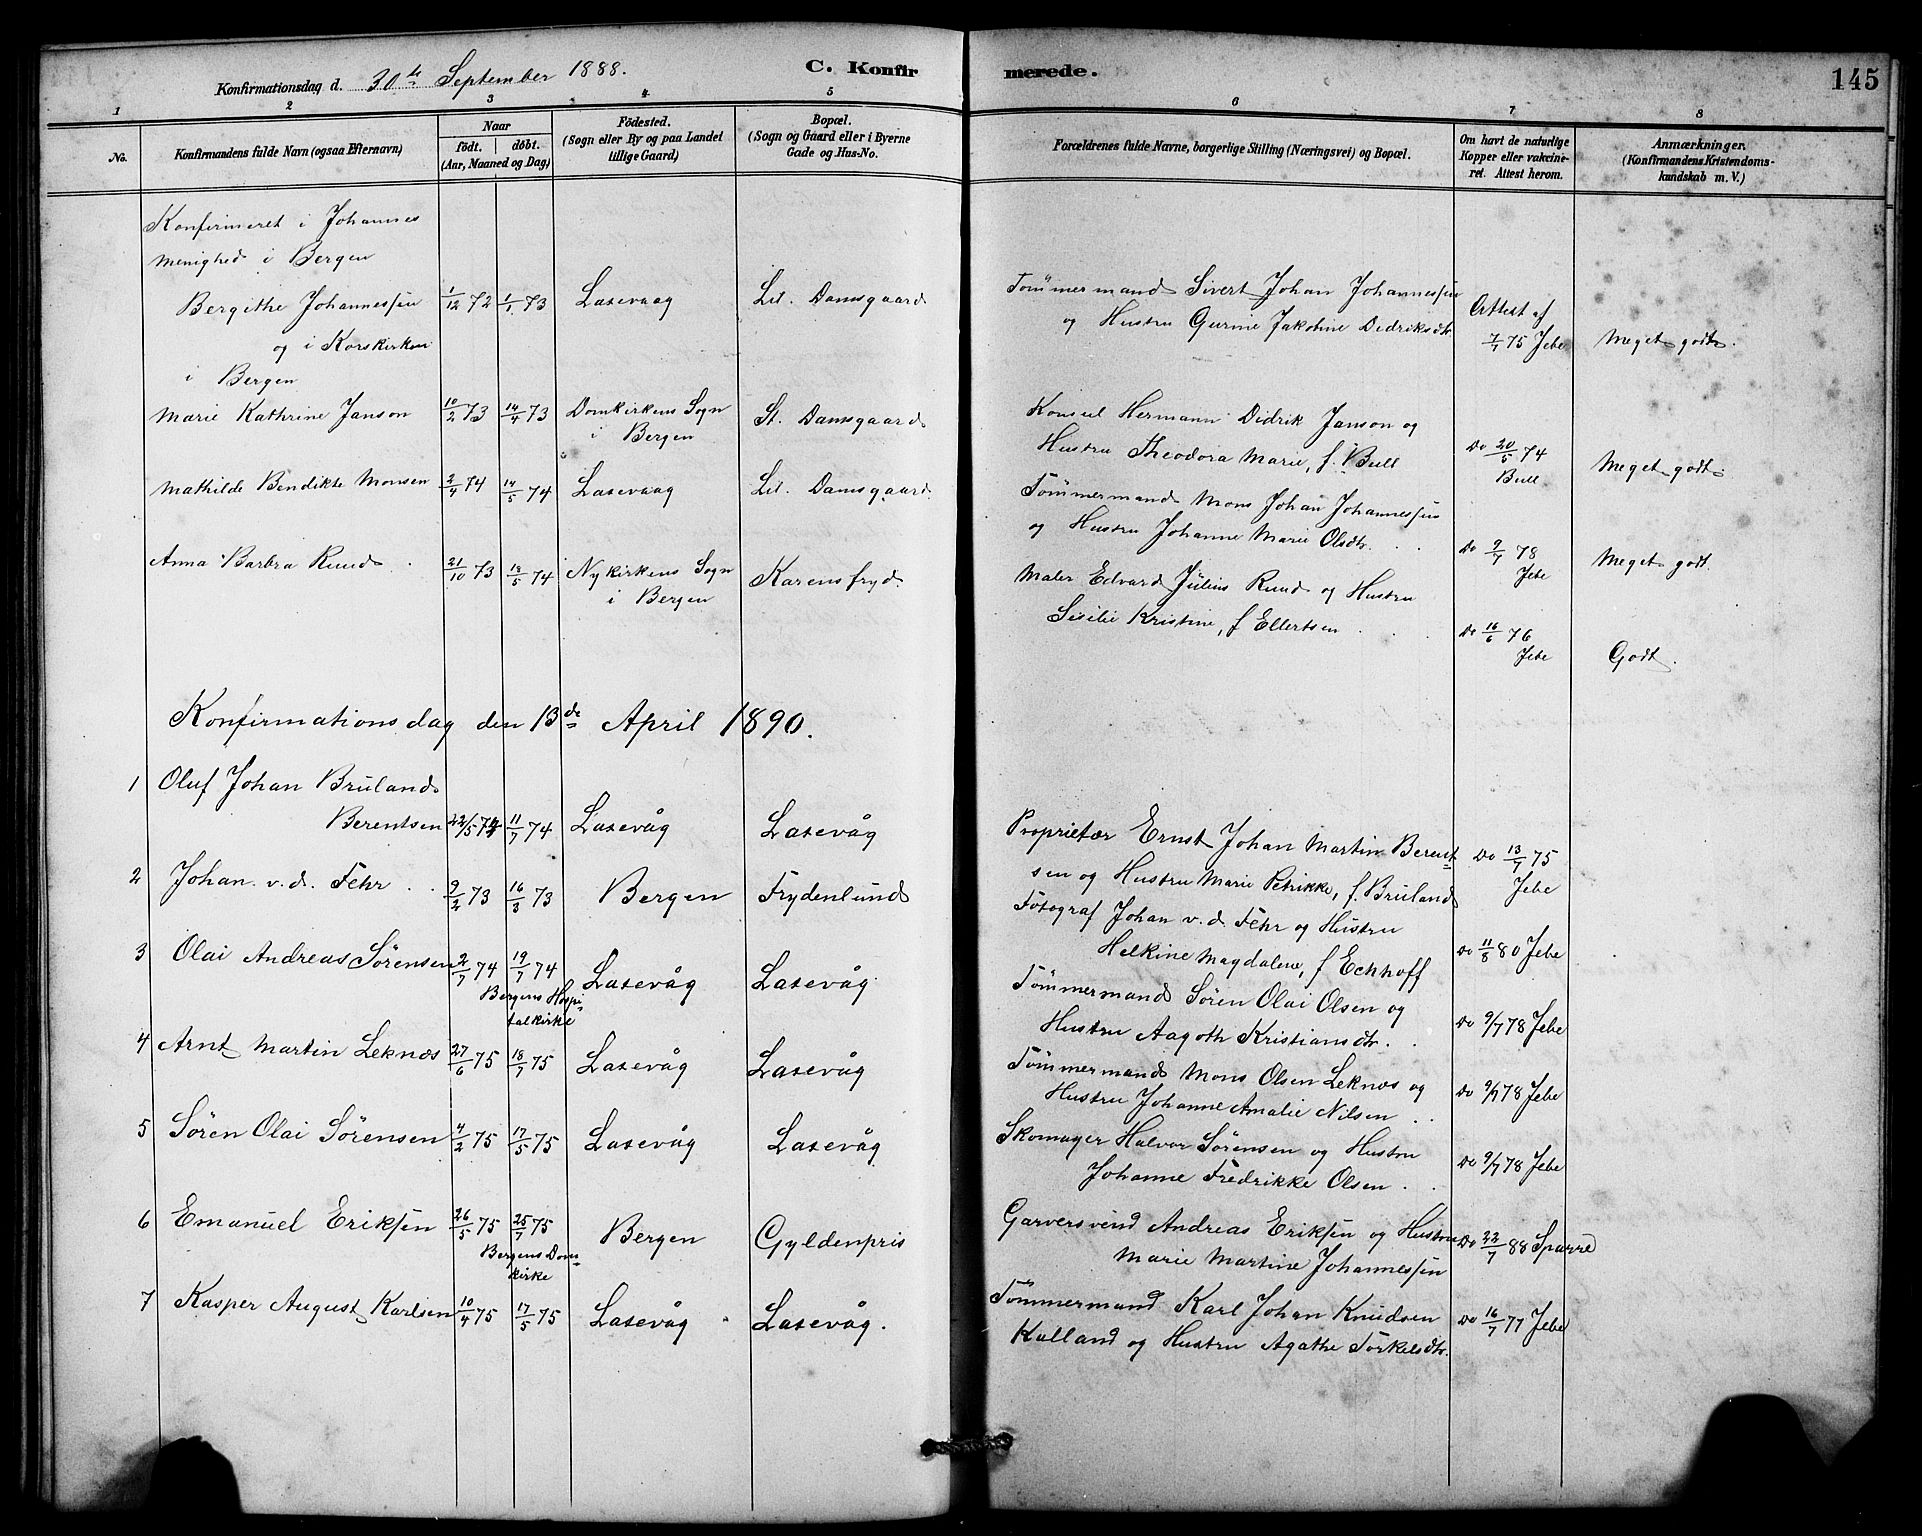 Konfirmationsdag d. 30te September 1888.
C. Konfirmerede.
145
1 2 3 4 5 6 7 8
No.
Konfirmandens fulde Navn (ogsaa Efternavn)
Naar
födt. döbt.
(Aar, Maaned og Dag)
Födested.
(Sogn eller By og paa Landet
tillige Gaard)
Bopæl.
(Sogn og Gaard eller i Byerne
Gade og Hus-No.
Forældrenes fulde Navne, borgerlige Stilling (Næringsvei) og Bopæl.
Om havt de naturlige
Kopper eller vakcine-
ret. Attest herom.
Anmærkninger.
(Konfirmandens Kristendoms-
kundskab m. V.)
Konfirmeret i Johannes
menighed i Bergen
Bergithe Johannessen 1/12 72 1/1 73 Laxevaag Lil. Damsgaard
Tömmermand Sivert Johan Johannessen
og Hustru Gurine Jakobine Didriksdtr
Attest af
7/7 75 Jebe
Meget godt.
og i Korskirken
i Bergen
Marie Kathrine Janson 10/2 73 14/4 73 Domkirkens Sogn
i Bergen
St. Damsgaard
Konsul Hermann Didrik Janson og
Hustru Theodora Marie, f. Bull
Do 20/5 74
Bull
Meget godt.
Mathilde Bendikte Monsen 2/4 74 14/5 74 Laxevaag Lil. Damsgaard.
Tömmermand Mons Johan Johannessen
og Hustru Johanne Marie Olsdtr.
Do 9/7 78
Jebe
Meget godt.
Anna Barbra Ruud 21/10 73 13/5 74 Nykirkens Sogn
i Bergen
Karensfryd.
Maler Edvard Julius Ruud og Hustru
Sisilie Kristine, f Ellertsen
Do 16/6 76
Jebe
Godt.
Konfirmationsdag den 13de April 1890.
1 Oluf Johan Bruland
Berentsen 22/5 74 11/7 74 Laxevåg Laxevåg
Proprietær Ernst Johan Martin Berent
sen og Hustru Marie Petrikke, f. Bruland
Do 13/7 75
Jebe
2 Johan v. d. Fehr 9/2 73 16/3 73 Bergen Frydenlund
Fotograf Johan v. d. Fehr og Hustru
Helkine Magdalene, f Eckhoff
Do 11/8 80 Jebe
3 Olai Andreas Sørensen 2/7 74 19/7 74 Laxevåg Laxevåg
Bergens Hospi
talkirke
Tömmermand Sören Olai Olsen og
Hustru Aagoth Kristiansdtr.
Do 9/7 78 Jebe
4 Arnt Martin Leknæs 27/6 75 18/7 75 Laxevåg Laxevåg
Tömmermand Mons Olsen Leknæs og
Hustru Johanne Amalie Nilsen
Do 9/7 78 Jebe
5 Søren Olai Sørensen 4/2 75 17/5 75 Laxevåg Laxevåg
Skomager Halvor Sørensen og Hustru
Johanne Fredrikke Olsen
Do 9/7 78 Jebe
6 Emanuel Eriksen 26/5 75 25/7 75 Bergen Gyldenpris
Bergens Dom
kirke
Garversvend Andreas Eriksen og Hustru
Marie Martine Johannessen
Do 22/7 88 Sparre
7 Kasper August Karlsen 10/4 75 17/5 75 Laxevåg Laxevåg.
Tömmermand Karl Johan Knudsen
Kalland og Hustru Agathe Torkelsdtr.
Do 16/7 77 Jebe